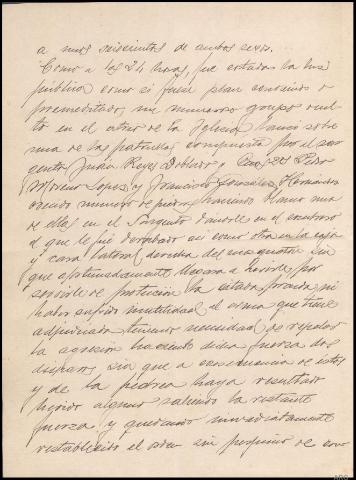 a unos seiscientos de ambos sexos.
Como a las 24 horas, fue cortada la luz
pública como si fuera plan convenido o
premeditado, un numeroso grupo ocul-
to en el atrio de la Iglesia lanzó sobre
una de las patrullas compuesta por el sar-
gento Juan Reyes Doblado y Pedro
Moreno Lopez y Francisco Gonzales Hernandez
numero de piedras, haciendo blanco una
de ellas en el Sargento dandole en el
al que le fué derribado asi como otra en la caja
y cara lateral derecha del mosqueton sin
que afortunadamente llegara a herirle, por
servirle de protección la citada prenda ni
haber sufrido inutilidad el arma que tiene
adjudicada, teniendo necesidad de repeler
la agresión haciendo dicha fuerza dos
disparos, sin que a consecuencia de estos
y de la pedrea haya resultado
herido alguno saliendo la restante
fuerza y quedando inmediatamente
restablecido el orden sin perjuicio de